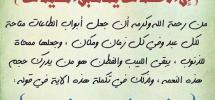 من رحمة الله وكرمه أن جعل أبواب الطاعات متاحة
لكل عبد وفي كل زمان ومكان ، وجعلها ممحاة
للذنوب ، يبقى اللبيب والفطن هو من يدرك حجم
هذه النعمه ، وترك في تكملة هذه الآية في قوله :